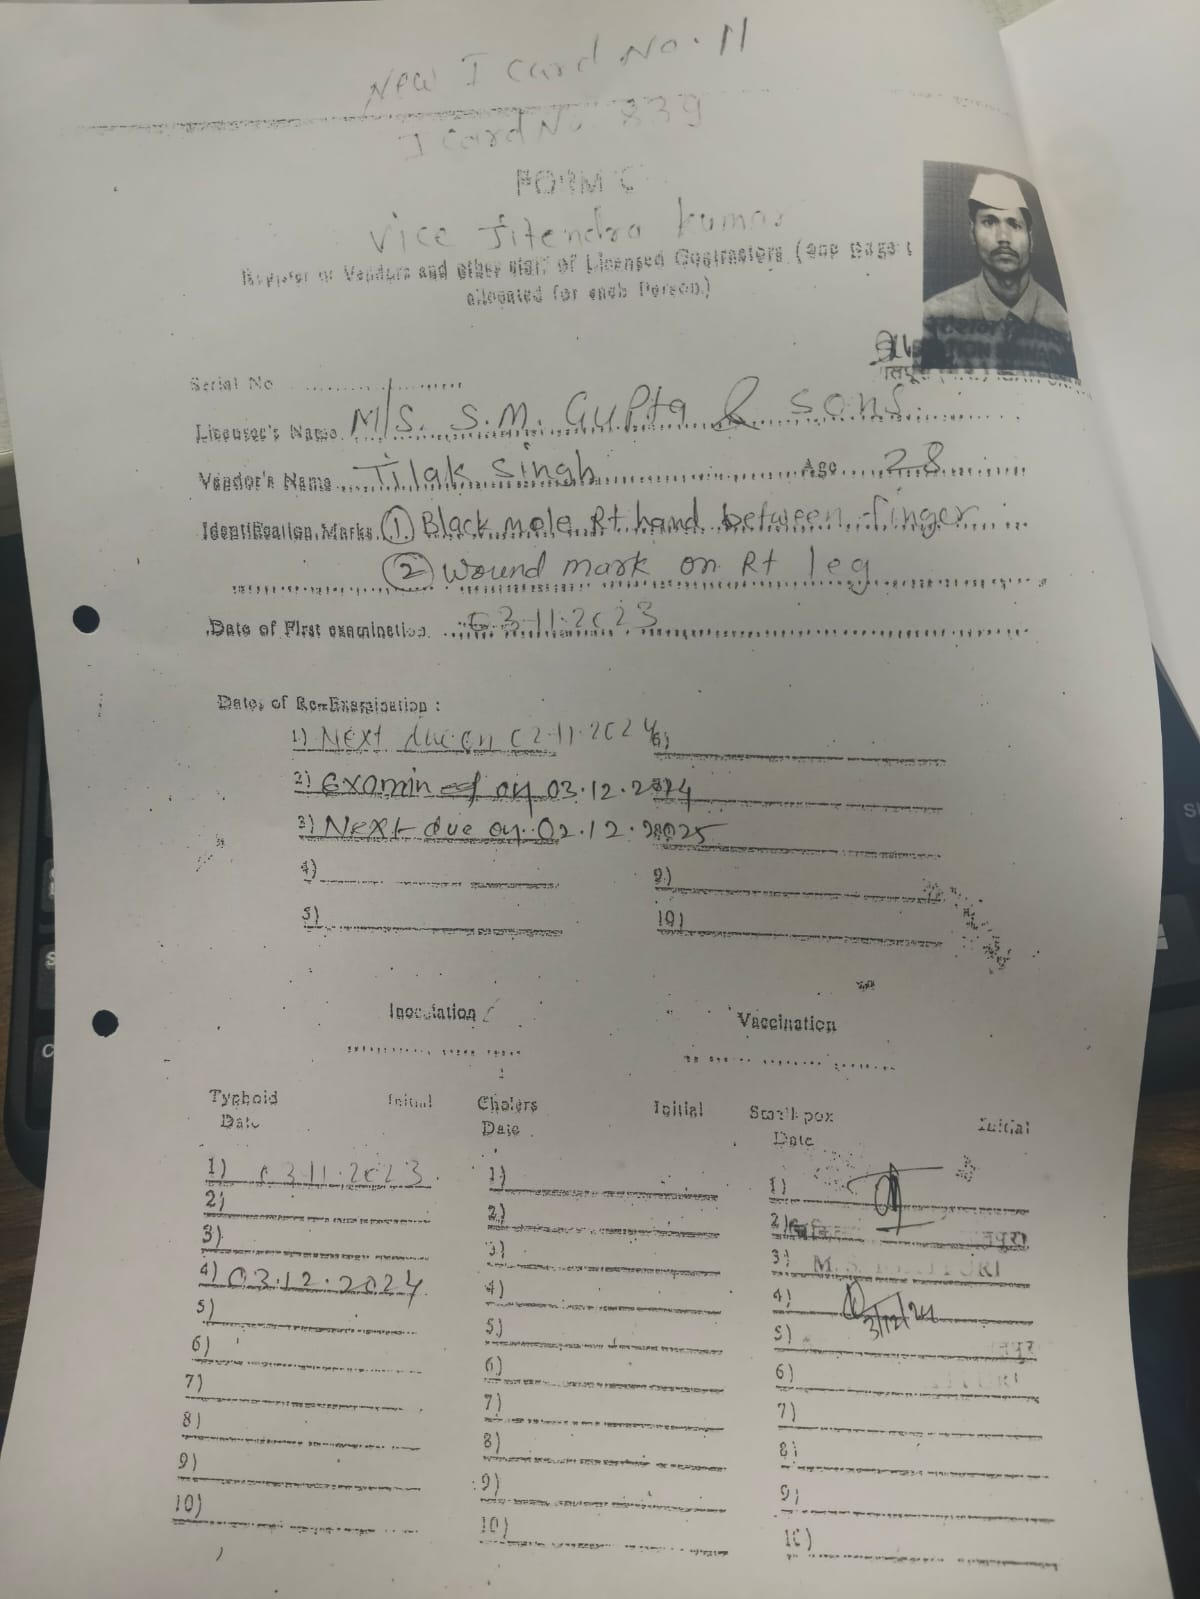 New I Card No. 11
I Card No 839
FORM C
Vice Jitendra kumar
Register of Vendors and other staff of Licensed Contractors (one page
allocated for each Person.)
Serial No ....................
Licensee's Name M/S. S.M. Gupta & Sons.
Vendor's Name Tilak Singh Age 28
Identification Marks (1) Black mole Rt hand between finger
(2) wound mark on Rt leg
Date of First examination 03.11.2023
Dates of Re-Examination :
1) Next due on 02.11.2024 6)
2) Examined on 03.12.2024
3) Next due on 02.12.2025
4) 9.)
5) 10)
Inoculation Vaccination
Typhoid Initial Cholera Initial Small pox Initial
Date Date Date
1) 03.11.2023 1) 1)
2) 2) 2)
3) 3) 3) M. S.
4) 03.12.2024 4) 4) 3/12/24
5) 5) 5)
6) 6) 6)
7) 7) 7)
8) 8) 8)
9) 9) 9)
10) 10) 10)